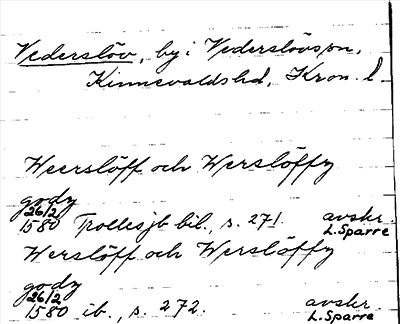 Vederslöv, by i Vederslövs sn,
Kinnevalds hd, Kron. l.
Weerslöff och Werslöffz
godz
26/2
1580 Trollesjb bil., s. 271. avskr.
L. Sparre
Werslöff och Werslöffz
godz
26/2
1580 ib., s. 272. avskr.
L. Sparre